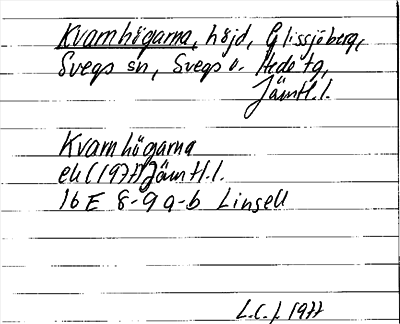 Kvarnhögarna, höjd, Glissjöberg,
Svegs sn, Svegs o. Hede tg,
Jämtl.l.
Kvarnhögarna
ek (1977) Jämtl.l.
16 E 8-9 a-b Linsell
L.C.J. 1977